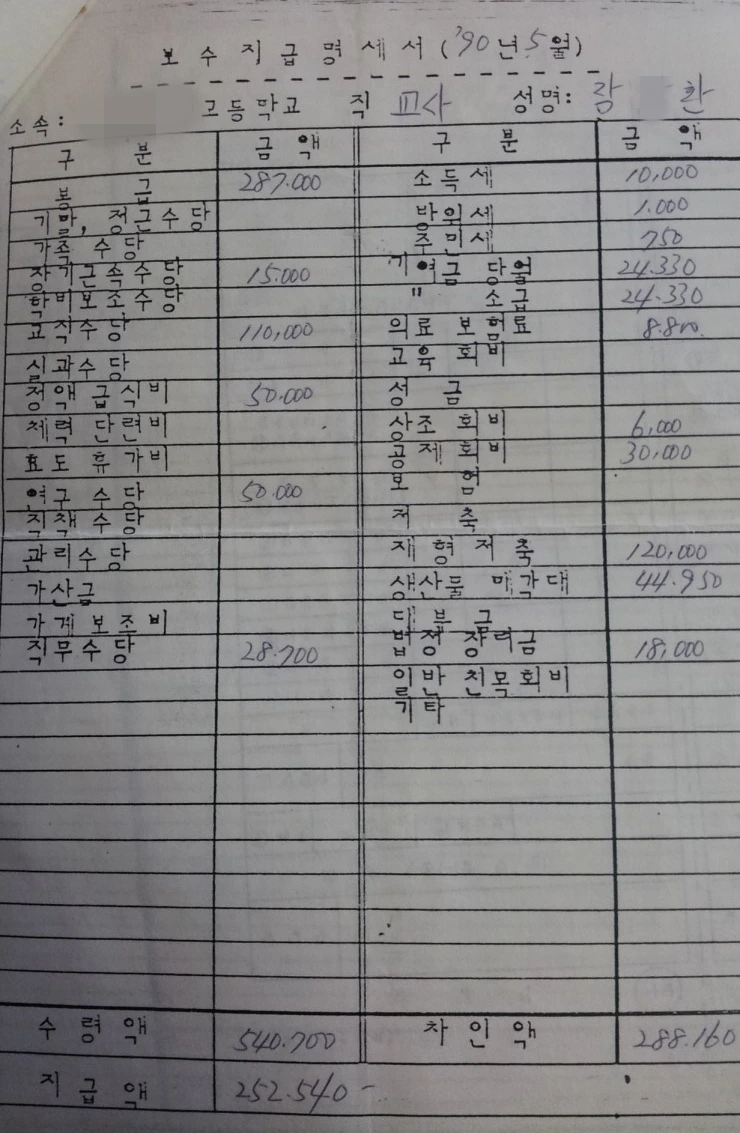 보수지급명세서('90년 5월)
소속: 고등학교 직 교사 성명: 환
구 분 금 액 구 분 금 액
봉 급 287.000 소득세 10,000
기말, 정근수당 방위세 1.000
가족 수당 주민세 750
장기근속수당 15.000 기여금 당월 24.330
학비보조수당 " 소급 24.330
교직수당 110,000 의료 보험료 8.800
실과수당 교육 회비
정액 급식비 50.000 성 금
체력 단련비 상조 회비 6,000
효도 휴가비 공제 회비 30,000
연구 수당 50.000 보 험
직책수당 저 축
관리수당 재형저축 120,000
가산금 생산물 매각대 44.950
가계보조비 대부금
직무수당 28.700 법정 장려금 18,000
일반 친목회비
기타
수령액 540.700 차인액 288.160
지급액 252.540-